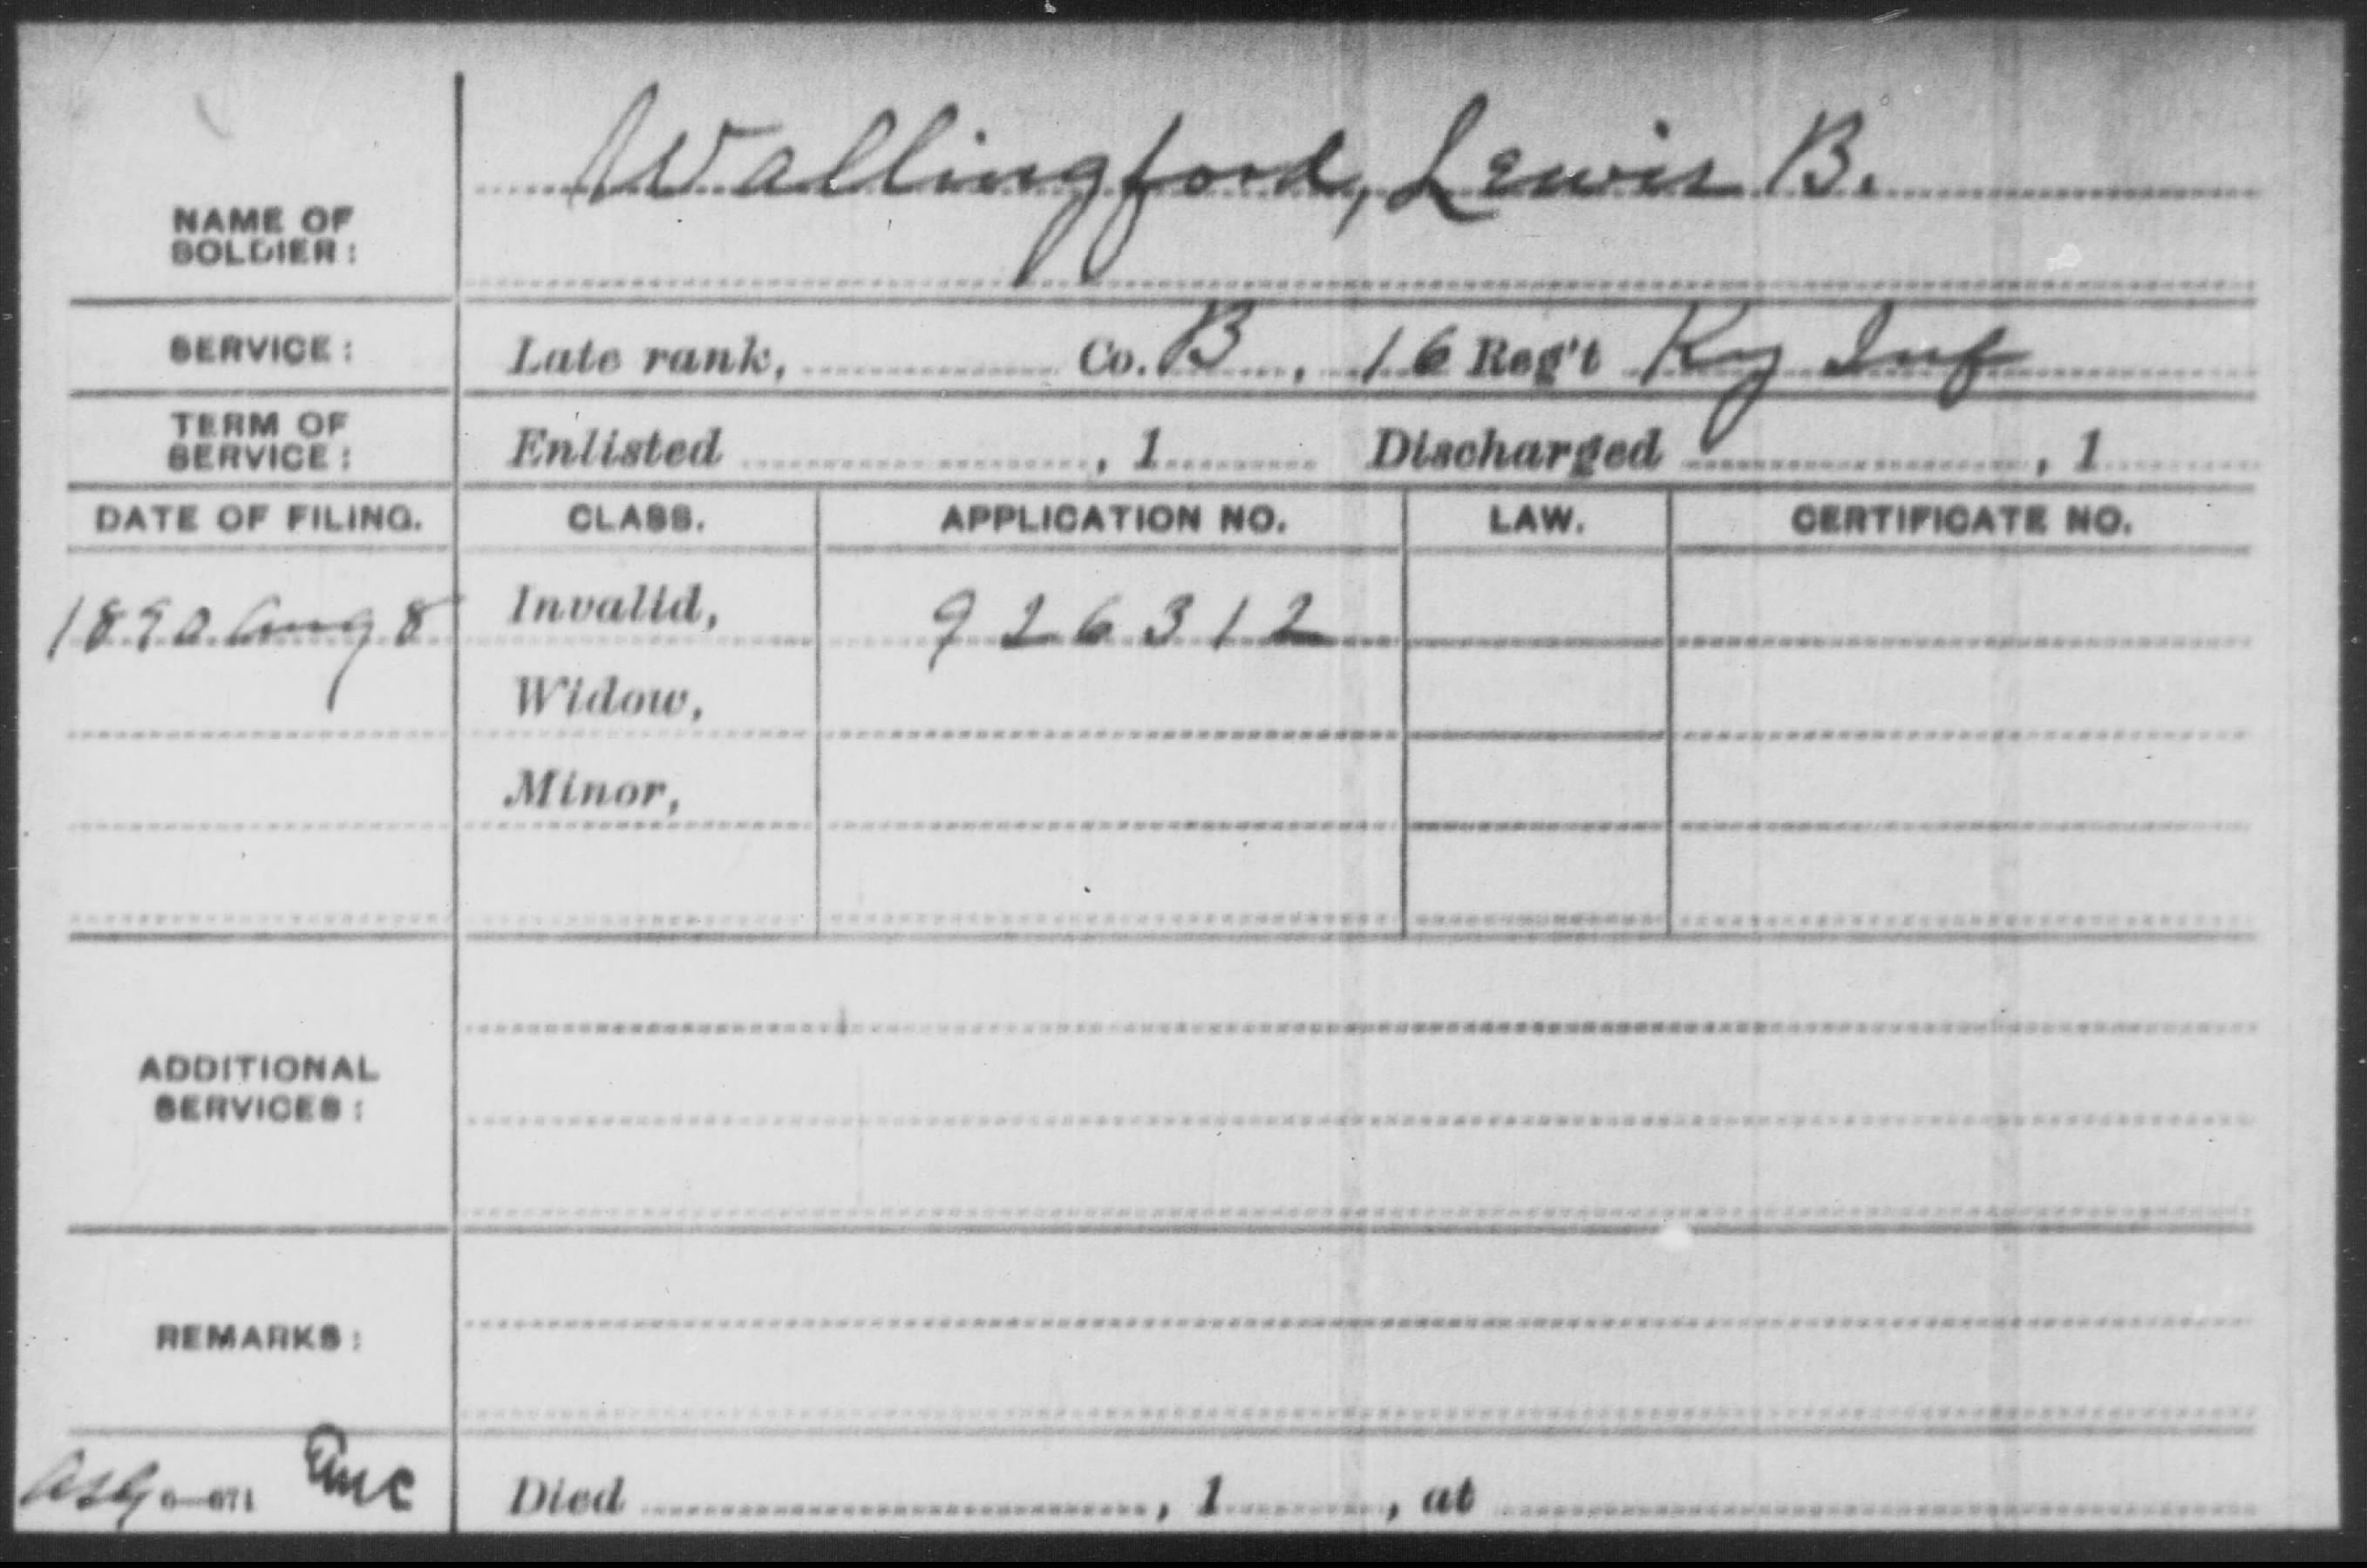 Wallingford, Lewis B.
NAME OF
SOLDIER:
SERVICE: Late rank, Co. B, 16 Reg't Ky Inf
TERM OF
SERVICE: Enlisted , 1 Discharged , 1
DATE OF FILING. CLASS. APPLICATION NO. LAW. CERTIFICATE NO.
1890 Aug 8 Invalid, 926312
Widow,
Minor,
ADDITIONAL
SERVICES:
REMARKS:
Died , 1 , at